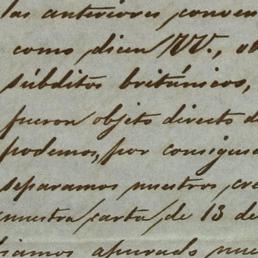 las anteriores conven
como dicen VV., ob
súbditos británicos,
fueron objeto directo d
podemos, por consigu
separamos nuestros cre
nuestra carta, de 13 de
apurado nue